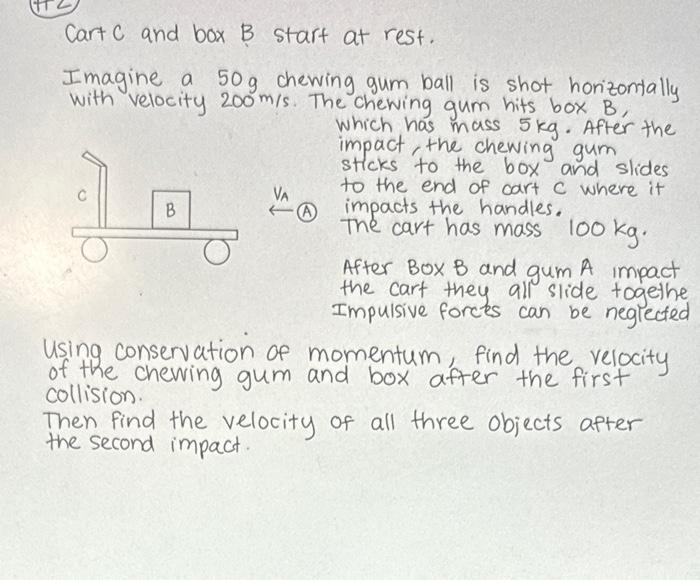 #2
Cart C and box B start at rest.
Imagine a 50g chewing gum ball is shot horizontally
with velocity 200 m/s. The chewing gum hits box B,
which has mass 5kg. After the
impact, the chewing gum
sticks to the box and slides
to the end of cart C where it
impacts the handles.
The cart has mass 100 kg.
C
B
VA
A
After Box B and gum A impact
the cart they all slide togethe
Impulsive forces can be neglected
Using conservation of momentum, find the velocity
of the chewing gum and box after the first
collision.
Then find the velocity of all three objects after
the second impact.